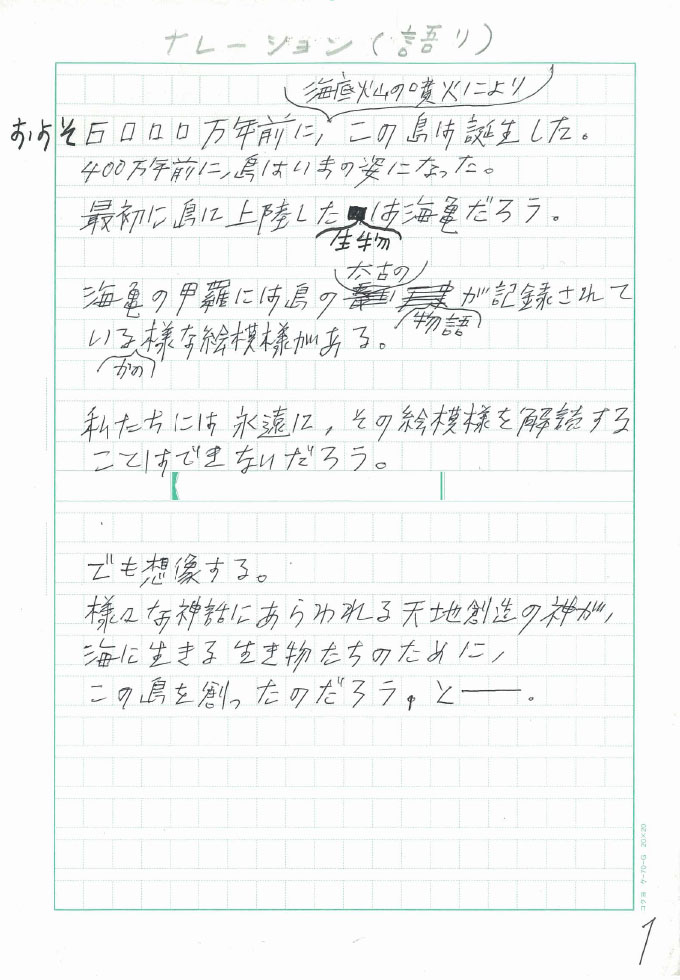 ナレーション(語り)
海底火山の噴火により
およそ6000万年前に、この島は誕生した。
400万年前に、島はいまの姿になった。
最初に島に上陸した は海亀だろう。
生物
太古の
海亀の甲羅には島の が記録されて
物語
いる様な絵模様がある。
かの
私たちには永遠に、その絵模様を解読する
ことはできないだろう。
でも想像する。
様々な神話にあらわれる天地創造の神が、
海に生きる生き物たちのために、
この島を創ったのだろう。と――。
コクヨ ケ-70-G 20×20
1